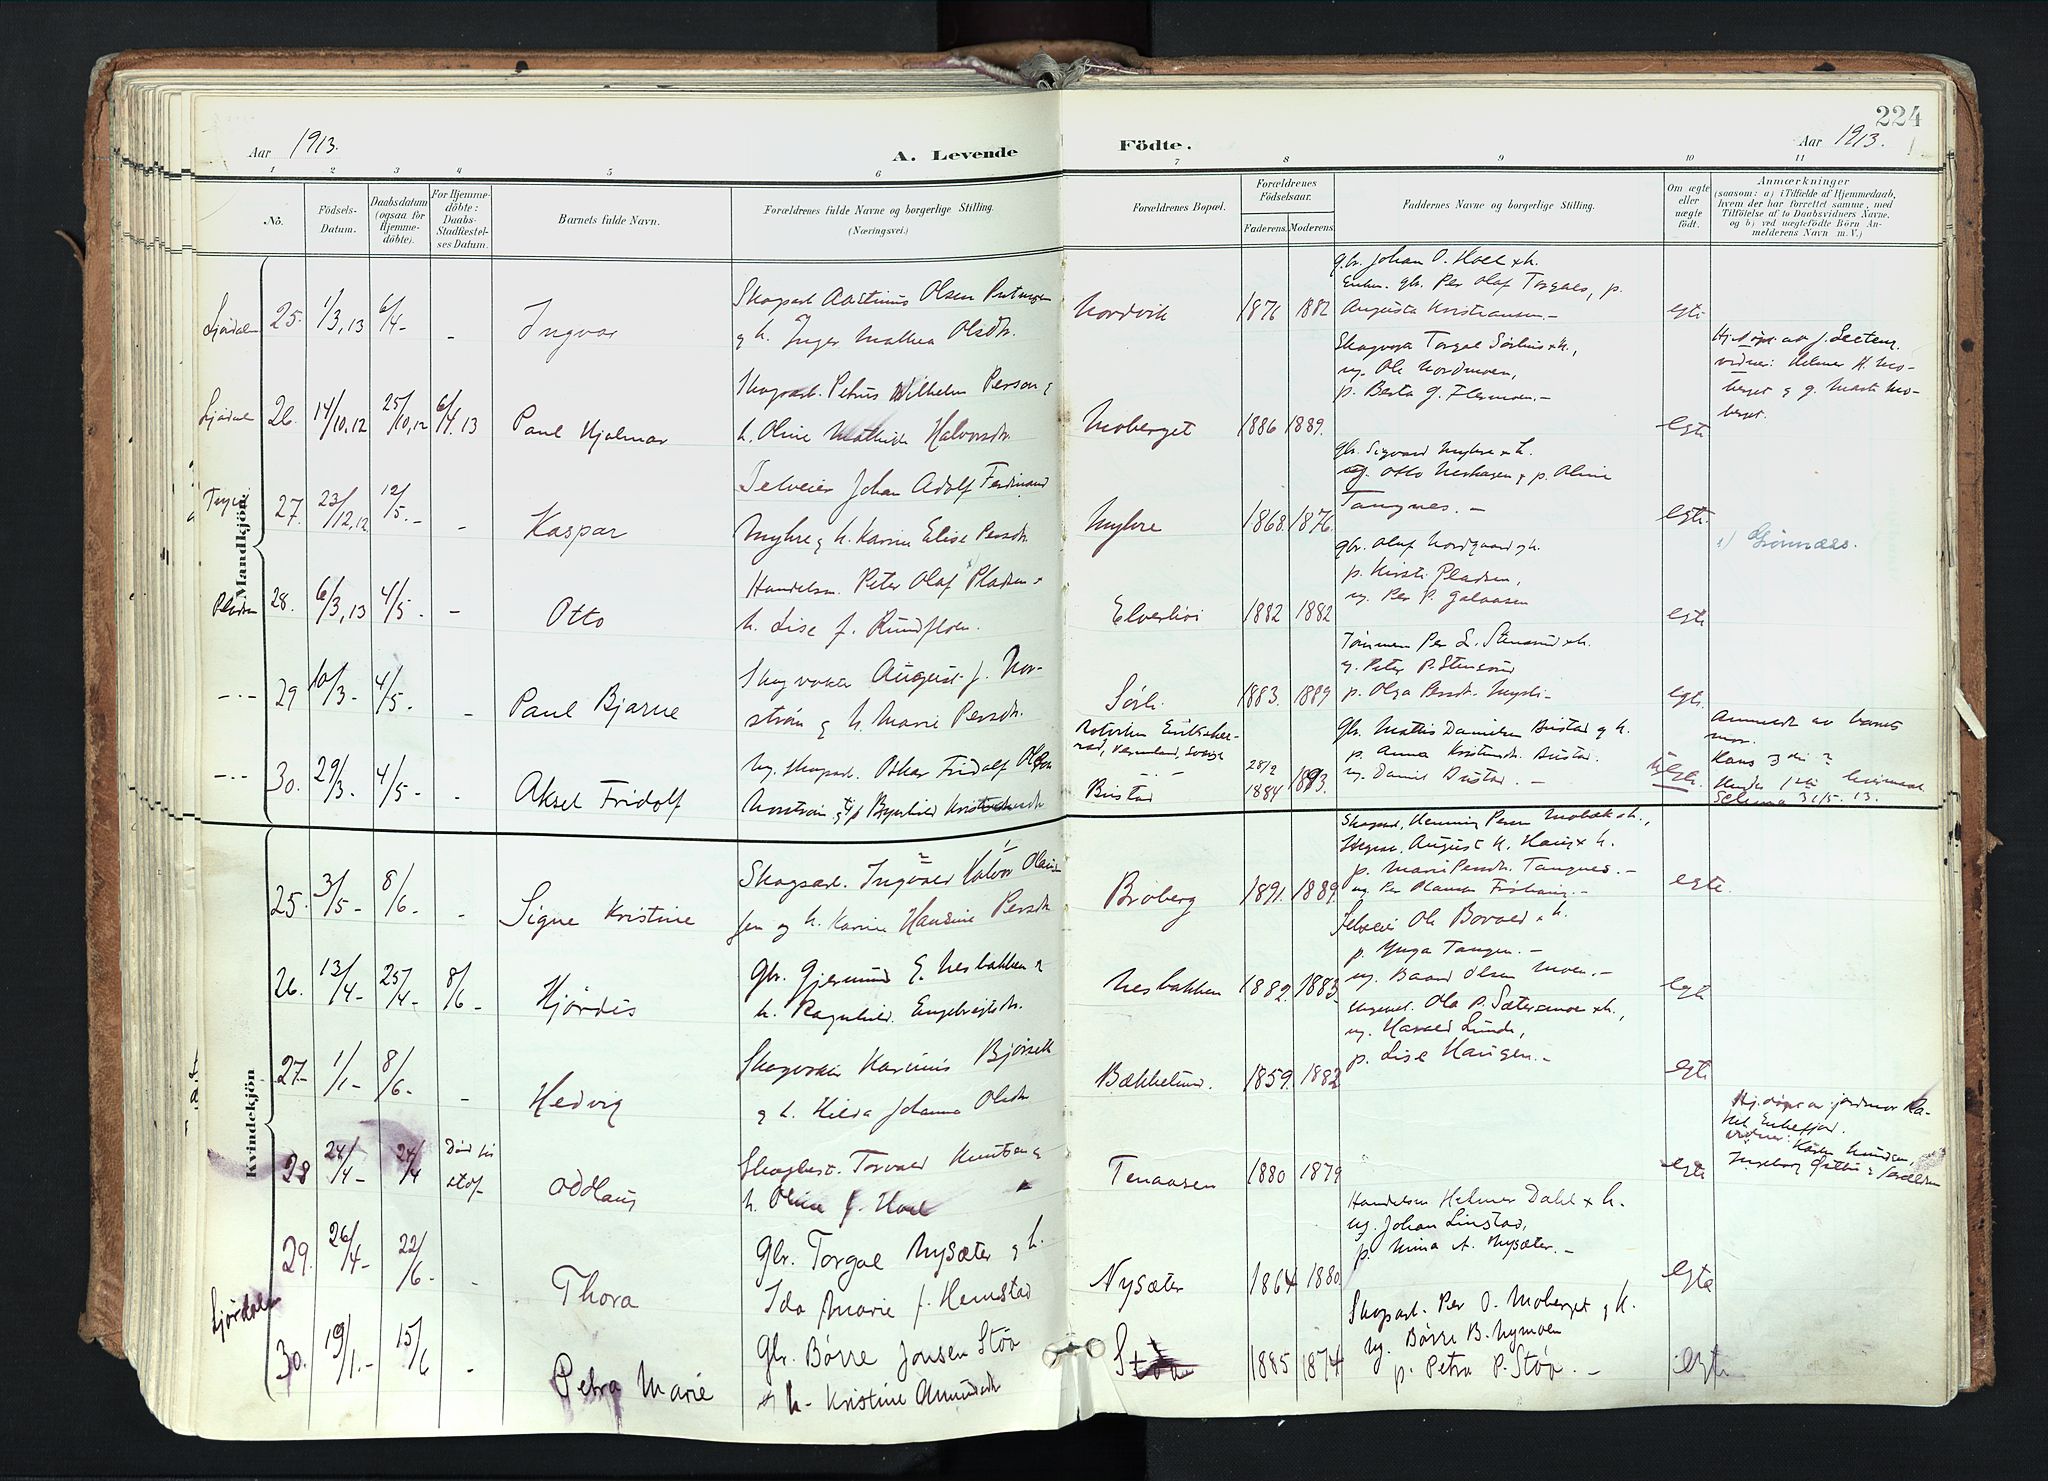 224
Aar 1913.
A. Levende
Födte.
Aar 1913.
1 2 3 4 5 6 7 8 9 10 11
Nô.
Födsels-
Datum.
Daabsdatum
(ogsaa for
Hjemme-
döbte).
For Hjemme-
döbte:
Daabs-
Stadfæstel-
ses Datum.
Barnets fulde Navn.
Forældrenes fulde Navne og borgerlige Stilling.
(Næringsvei.)
Forældrenes Bopæl.
Forældrenes
Födselsaar.
Faderens.
Moderens.
Faddernes Navne og borgerlige Stilling.
Om ægte
eller
uægte
födt.
Anmærkninger
(saasom: a) i Tilfælde af Hjemmedaab,
hvem der har forrettet samme, med
Tilföielse af to Daabsvidners Navne,
og b) ved uægtefödte Börn An-
melderens Navn m. V.)
Mandkjön
Ljørdalen 25. 1/3,13 6/4- - Ingvar
Skogsarb. Olsen
g h. Inger Mathea Olsdtr.
Nordvik 1876 1882
gbr. Johan O. Holl x h.
gbr. Per Olaf Torgals, p.
Augusta Kristiansen.-
egte
Ljørdalen 26. 14/10.12 25/10,12 6/4.13 Paul Hjalmar
Skogsarb. Petrus Wilhelm Person g
h. Oline Mathilde Halvorsdtr.
Moberget 1886 1889.
Torgal Sørhus x h.,
ug. Ole Nordmoen,
p. Berta G. Flermoen.-
egte
Hj.døpt av J. Sletten.
vidner: Helmer H. Mo-
berget g g. Marte Mo-
berget.
27. 23/12,12 12/5.- - Kaspar
Selveier Johan Adolf Ferdinand
Myhre g h. Karine Elise Persdtr.
Myhre 1868. 1876.
gbr. Sigvard Myhre x h.
ug. Otto Neshagen g p. Oline
Tangnes. -
egte.
Pladsen 28. 6/3,13 4/5- - Otto
Handelsm. Peter Olaf Pladsen x
h. Lise f. Rundfloen.
Elverhøi 1882 1882
gbr. Olaf Nordgaard g h.
p. Kirsti Pladsen,
ug. Per P. Galaasen
egte
1) Grønnæss.
-.- 29 10/3- 4/5. - Paul Bjarne
Skogvokter August J. Nor-
ström g h. Marie Persdtr.
Sørli. 1883. 1889
Tømmerm. Per L. Stensund x h.
ug. Peter P. Stensund
p. Olga Persdtr. Nysti-
egte.
-.- 30. 29/3. 4/5- - Aksel Fridolf
Ug. skogsarb. Oskar Fridolf Olson
g p Bynhild Kristiansdtr
Vermland, Sverige
Bustad 28/2 1884 1893.
gbr. Mattis Danielsen Bustad g h.
p. Anna Kristiansdtr. Bustad.
ug. Daniel Bustad. -
uegte.
Anmeldt av barnets
mor.
Hans 3die ?
Hendes 1ste
Schema 31/5.13.
Kvindekjön
25. 3/5- 8/6 - Signe Kristine
Skogsarb. Ingvald Halvor Olaus-
sen og h. Karine Hansine Persdtr
Broberg 1891. 1889.
Skogsarb. Henning Persen Mobæk x h.,
August H. Haug x h.
p. Marie Persdtr. Tangnes.-
egte.
26. 13/4- 25/4- 8/6- Hjørdis
Gbr. Gjermund E. Nesbakken g
h. Ragnhild Engebregtsdtr.
Nesbakken 1882. 1883.
Selveier Ole Borvold x h.
p. Ynga Tangen.-
ug. Baard Olsen Moen.-
egte
27- 1/1- 8/6- - Hedvig
Skogvokter Karinius Bjørseth
g h. Hilda Johanna Olsdtr
Bækkelund. 1859. 1882
Ola P. Sætermoen x h.,
ug. Harald Lunde,
p. Lise Haugen.-
egte
28 24/4- 24/4 Død sis stof- Oddlaug
Skogbest. Torvald Knutsen g
h. Oline f. Holl
Tenaasen 1880 1879
egte
Hj.døpt av jordmor Ra-
kel Enkefjord.
vidner: Karen Knudsen,
29. 26/4- 22/6- - Thora
Gbr. Torgal Nysæter g h.
Ida Marie f. Hemstad
Nysæter 1864 1880
Handelsm Helmer Dahl x h.
ug. Johan Linstad,
p. Mina A. Nysæter.-
egte
Ljørdalen 30. 19/1.- 15/6 - Petra Marie
Gbr. Børre Jonsen Støa
g h- Kristine Amundsdtr
Støa 1885 1874
Skogsarb. Per O. Moberget g h.
ug. Børre B. Nymoen
p. Petra P. Støa. -
egte